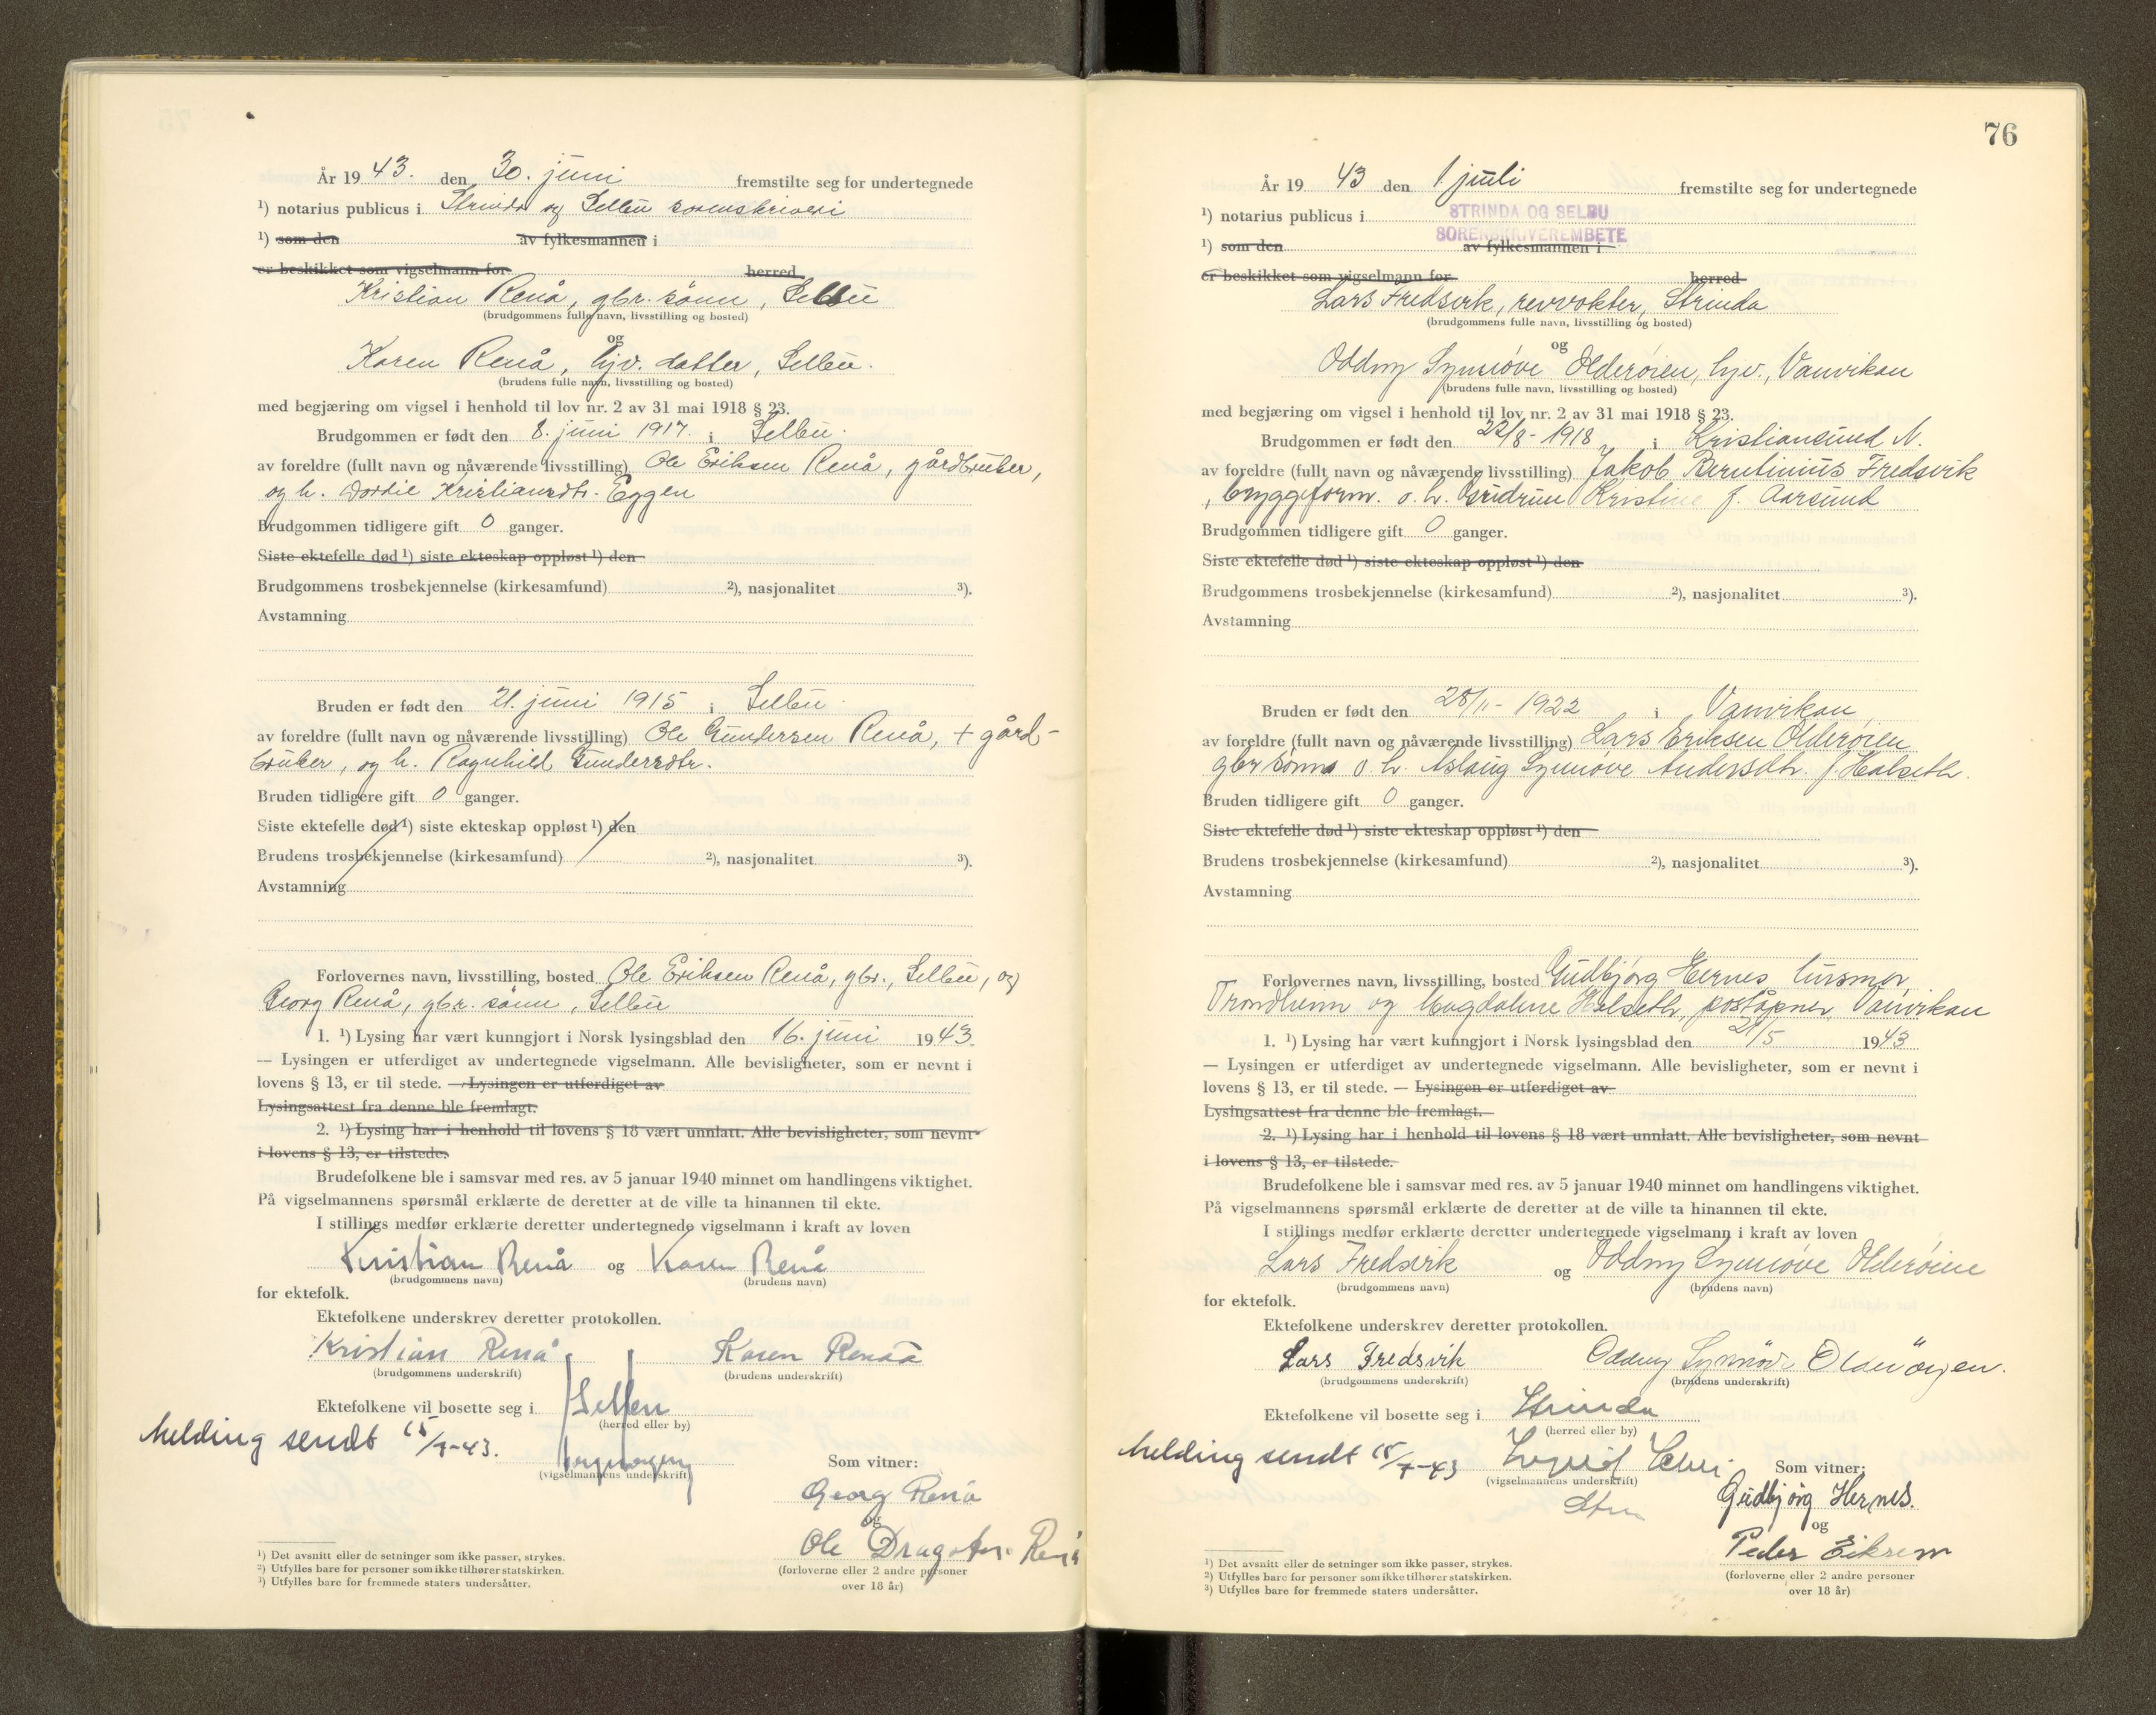 År 19 43. den 30. juni fremstilte seg for undertegnede
¹) notarius publicus i Strinda og Selbu sorenskriveri
¹) som den av fylkesmannen i
er beskikket som vigselmann for herred
Kristian Renå, gbr. sønn, Selbu
(brudgommens fulle navn, livsstilling og bosted)
og
Karen Renå, hjv. datter, Selbu.
(brudens fulle navn, livsstilling og bosted)
med begjæring om vigsel i henhold til lov nr. 2 av 31 mai 1918 § 23.
Brudgommen er født den 8. juni 1917. i Selbu.
av foreldre (fullt navn og nåværende livsstilling) Ole Eriksen Renå, gårdbruker,
og h. Dordie Kristiansdtr. Eggen
Brudgommen tidligere gift 0 ganger.
Siste ektefelle død ¹) siste ekteskap oppløst ¹) den
Brudgommens trosbekjennelse (kirkesamfund) ²), nasjonalitet ³).
Avstamning
Bruden er født den 21. juni 1915 i Selbu.
av foreldre (fullt navn og nåværende livsstilling) Ole Gundersen Renå, + gård-
bruker, og h. Ragnhild Gundersdtr.
Bruden tidligere gift 0 ganger.
Siste ektefelle død ¹) siste ekteskap oppløst ¹) den
Brudens trosbekjennelse (kirkesamfund) ²), nasjonalitet ³).
Avstamning
Forlovernes navn, livsstilling, bosted Ole Eriksen Renå, gbr., Selbu, og
Georg Renå, gbr. sønn, Selbu
1. ¹) Lysing har vært kunngjort i Norsk lysingsblad den 16. juni 1943
— Lysingen er utferdiget av undertegnede vigselmann. Alle bevisligheter, som er nevnt i
lovens § 13, er til stede. — Lysingen er utferdiget av
Lysingsattest fra denne ble fremlagt.
2. ¹) Lysing har i henhold til lovens § 18 vært unnlatt. Alle bevisligheter, som nevnt
i lovens § 13, er tilstede.
Brudefolkene ble i samsvar med res. av 5 januar 1940 minnet om handlingens viktighet.
På vigselmannens spørsmål erklærte de deretter at de ville ta hinannen til ekte.
I stillings medfør erklærte deretter undertegnede vigselmann i kraft av loven
Kristian Renå og Karen Renå
(brudgommens navn) (brudens navn)
for ektefolk.
Ektefolkene underskrev deretter protokollen.
Kristian Renå Karen Renåå
(brudgommens underskrift) (brudens underskrift)
Ektefolkene vil bosette seg i Selbu
(herred eller by)
Melding sendt 15/7-43.
(vigselmannens underskrift)
Som vitner:
Georg Renå
og
Ole Renå
(forloverne eller 2 andre personer
over 18 år)
¹) Det avsnitt eller de setninger som ikke passer, strykes.
²) Utfylles bare for personer som ikke tilhører statskirken.
³) Utfylles bare for fremmede staters undersåtter.
76
År 19 43 den 1 juli fremstilte seg for undertegnede
¹) notarius publicus i STRINDA OG SELBU
SORENSKRIVEREMBETE
¹) som den av fylkesmannen i
er beskikket som vigselmann for herred
Lars Fredsvik, revvokter, Strinda
(brudgommens fulle navn, livsstilling og bosted)
og
Oddny Synnøve Olderøien, hjv., Vanvikan
(brudens fulle navn, livsstilling og bosted)
med begjæring om vigsel i henhold til lov nr. 2 av 31 mai 1918 § 23.
Brudgommen er født den 22/8 - 1918 i Kristiansund N.
av foreldre (fullt navn og nåværende livsstilling) Jakob Berntinius Fredsvik
, bryggeform. o. h. Gudrun Kristine f. Aarsund
Brudgommen tidligere gift 0 ganger.
Siste ektefelle død ¹) siste ekteskap oppløst ¹) den
Brudgommens trosbekjennelse (kirkesamfund) ²), nasjonalitet ³).
Avstamning
Bruden er født den 28/11 - 1922 i Vanvikan,
av foreldre (fullt navn og nåværende livsstilling) Lars Eriksen Olderøien
gbr sønn o. h. Aslaug Synnøve Andersdtr. f. Halseth.
Bruden tidligere gift 0 ganger.
Siste ektefelle død ¹) siste ekteskap oppløst ¹) den
Brudens trosbekjennelse (kirkesamfund) ²), nasjonalitet ³).
Avstamning
Forlovernes navn, livsstilling, bosted Gudbjørg Hernes husmor,
Trondheim og Magdalene Halseth, poståpner, Vanvikan
1. ¹) Lysing har vært kunngjort i Norsk lysingsblad den 21/5 1943
— Lysingen er utferdiget av undertegnede vigselmann. Alle bevisligheter, som er nevnt i
lovens § 13, er til stede. — Lysingen er utferdiget av
Lysingsattest fra denne ble fremlagt.
2. ¹) Lysing har i henhold til lovens § 18 vært unnlatt. Alle bevisligheter, som nevnt
i lovens § 13, er tilstede.
Brudefolkene ble i samsvar med res. av 5 januar 1940 minnet om handlingens viktighet.
På vigselmannens spørsmål erklærte de deretter at de ville ta hinannen til ekte.
I stillings medfør erklærte deretter undertegnede vigselmann i kraft av loven
Lars Fredsvik og Oddny Synnøve Olderøien
(brudgommens navn) (brudens navn)
for ektefolk.
Ektefolkene underskrev deretter protokollen.
Lars Fredsvik Oddny Synnöve Olderöyen.
(brudgommens underskrift) (brudens underskrift)
Ektefolkene vil bosette seg i Strinda
(herred eller by)
Melding sendt 15/7-43
(vigselmannens underskrift)
Som vitner:
Gudbjørg Hernes.
og
Peder Eikrem
(forloverne eller 2 andre personer
over 18 år)
¹) Det avsnitt eller de setninger som ikke passer, strykes.
²) Utfylles bare for personer som ikke tilhører statskirken.
³) Utfylles bare for fremmede staters undersåtter.